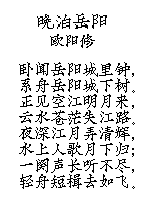 晚泊岳阳
欧阳修
卧闻岳阳城里钟，
系舟岳阳城下树。
正见空江明月来，
云水苍茫失江路。
夜深江月弄清辉，
水上人歌月下归；
一阕声长听不尽，
轻舟短楫去如飞。